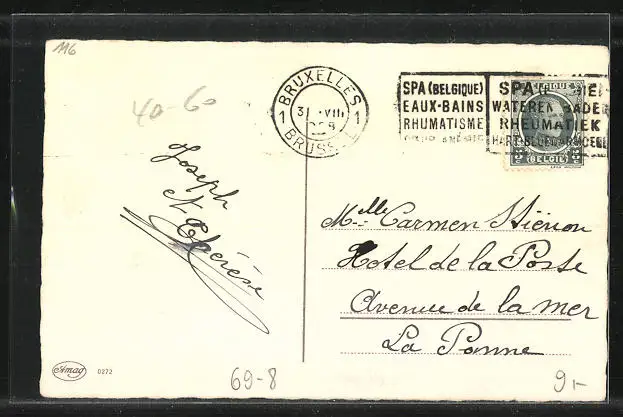 116
40-60
BRUXELLES
1 1
31 VIII
BRUSSEL
SPA (BELGIQUE)
EAUX-BAINS
RHUMATISME
SPA
WATEREN BADEN
RHEUMATIEK
HART-BLOEDARMOEDE
BELGIE
Joseph
& Thérèse
Melle Carmen Stiénon
Hotel de la Poste
Avenue de la mer
La Panne
Amag 0272
69-8
9.-